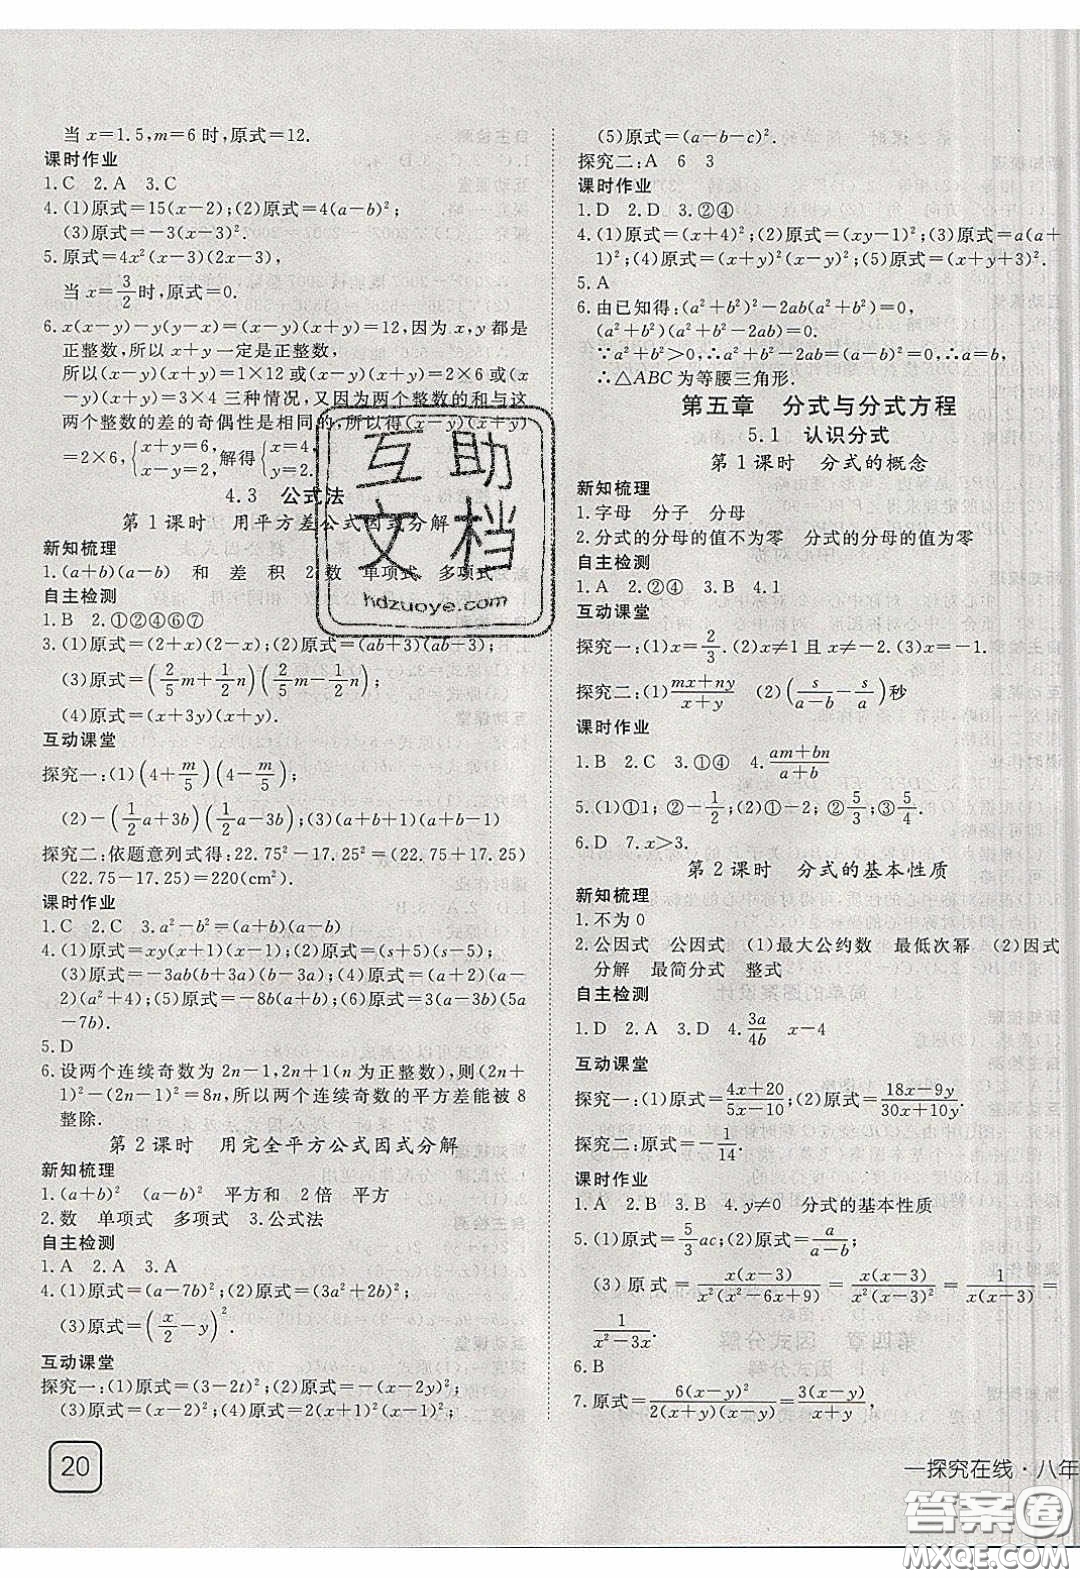 当 x=1.5,m=6 时,原式=12.
课时作业
1.C 2.A 3.C
4.(1)原式=15(x-2);(2)原式=4(a-b)²;
(3)原式=-3(x-3)².
5.原式=4x²(x-3)(2x-3),
当 x=3/2时,原式=0.
6.x(x-y)-y(y-x)=(x-y)(x+y)=12,因为 x,y 都是
正整数,所以 x+y 一定是正整数,
所以(x-y)(x+y)=1×12 或(x-y)(x+y)=2×6 或(x-
y)(x+y)=3×4 三种情况,又因为两个整数的和与这
两个整数的差的奇偶性是相同的,所以得(x-y)(x+y)
=2×6,{x+y=6, x-y=2, 解得{x=4, y=2.
4.3 公式法
第1课时 用平方差公式因式分解
新知梳理
1.(a+b)(a-b) 和 差 积 2.数 单项式 多项式
自主检测
1.B 2.①②④⑥⑦
3.(1)原式=(2+x)(2-x);(2)原式=(ab+3)(ab-3);
(3)原式=(2/5m+1/2n)(2/5m-1/2n);
(4)原式=(x+3y)(x-y).
互动课堂
探究一:(1)(4+m/5)(4-m/5);
(2)-(1/2a+3b)(1/2a-3b);(3)(a+b+1)(a+b-1)
探究二:依题意列式得:22.75²-17.25²=(22.75+17.25)
(22.75-17.25)=220(cm²).
课时作业
1.C 2.C 3.a²-b²=(a+b)(a-b)
4.(1)原式=xy(x+1)(x-1);(2)原式=(s+5)(s-5);
(3)原式=-3ab(b+3a)(b-3a);(4)原式=(a+2)(a-
2)(a²+4);(5)原式=-8b(a+b);(6)原式=3(a+b)(5a
-7b).
5.D
6.设两个连续奇数为 2n-1,2n+1(n 为正整数),则(2n+
1)²-(2n-1)²=8n,所以两个连续奇数的平方差能被 8
整除.
第2课时 用完全平方公式因式分解
新知梳理
1.(a+b)² (a-b)² 平方和 2倍 平方
2.数 单项式 多项式 3.公式法
自主检测
1.A 2.A 3.A
4.(1)原式=(a-7b)²;(2)原式=(3a²+2b)²;
(3)原式=(x/2-y)².
互动课堂
探究一:(1)原式=(3-2t)²;(2)原式=(x-y-4)²;
(3)原式=(x-2)²;(4)原式=2(x+1)²(x-1)²;
20
(5)原式=(a-b-c)².
探究二:A 6 3
课时作业
1.D 2.D 3.②④
4.(1)原式=(x+4)²;(2)原式=(xy-1)²;(3)原式=a(a+
1)²;(4)原式=(x+y)²(x-y)²;(5)原式=(x+y+3)².
5.A
6.由已知得:(a²+b²)²-2ab(a²+b²)=0,
(a²+b²)(a²+b²-2ab)=0.
∵a²+b²>0,∴a²+b²-2ab=(a-b)²=0,∴a=b,
∴△ABC 为等腰三角形.
第五章 分式与分式方程
5.1 认识分式
第1课时 分式的概念
新知梳理
1.字母 分子 分母
2.分式的分母的值不为零 分式的分母的值为零
自主检测
1.A 2.②④ 3.B 4.1
互动课堂
探究一:(1)x=2/3.(2)x≠1 且 x≠-2.(3)x=-1.
探究二:(1)(mx+ny)/(x+y) (2)(s/(a-b)-s/a)秒
课时作业
1.B 2.C 3.①④ 4.(am+bn)/(a+b)
5.(1)①1; ②-1/2;(2)①-2; ②5/3;③5/4.
6.D 7.x>3.
第2课时 分式的基本性质
新知梳理
1.不为 0
2.公因式 公因式 (1)最大公约数 最低次幂 (2)因式
分解 最简分式 整式
自主检测
1.D 2.A 3.D 4.3a/4b x-4
互动课堂
探究一:(1)原式=(4x+20)/(5x-10);(2)原式=(18x-9y)/(30x+10y).
探究二:原式=-1/14.
课时作业
1.A 2.B 3.B 4.y≠0 分式的基本性质
5.(1)原式=5/3ac;(2)原式=a/(a-b);
(3)原式=x(x-3)/x²(x²-6x+9)=x(x-3)/x²(x-3)²=1/x(x-3)=
1/(x²-3x).
6.B
7.原式=6(x-y)²/2(x+y)(x-y)=3(x-y)/(x+y),
一探究在线·八年
互助
文档
hdzuoye.com
答案圈
MXQE.COM